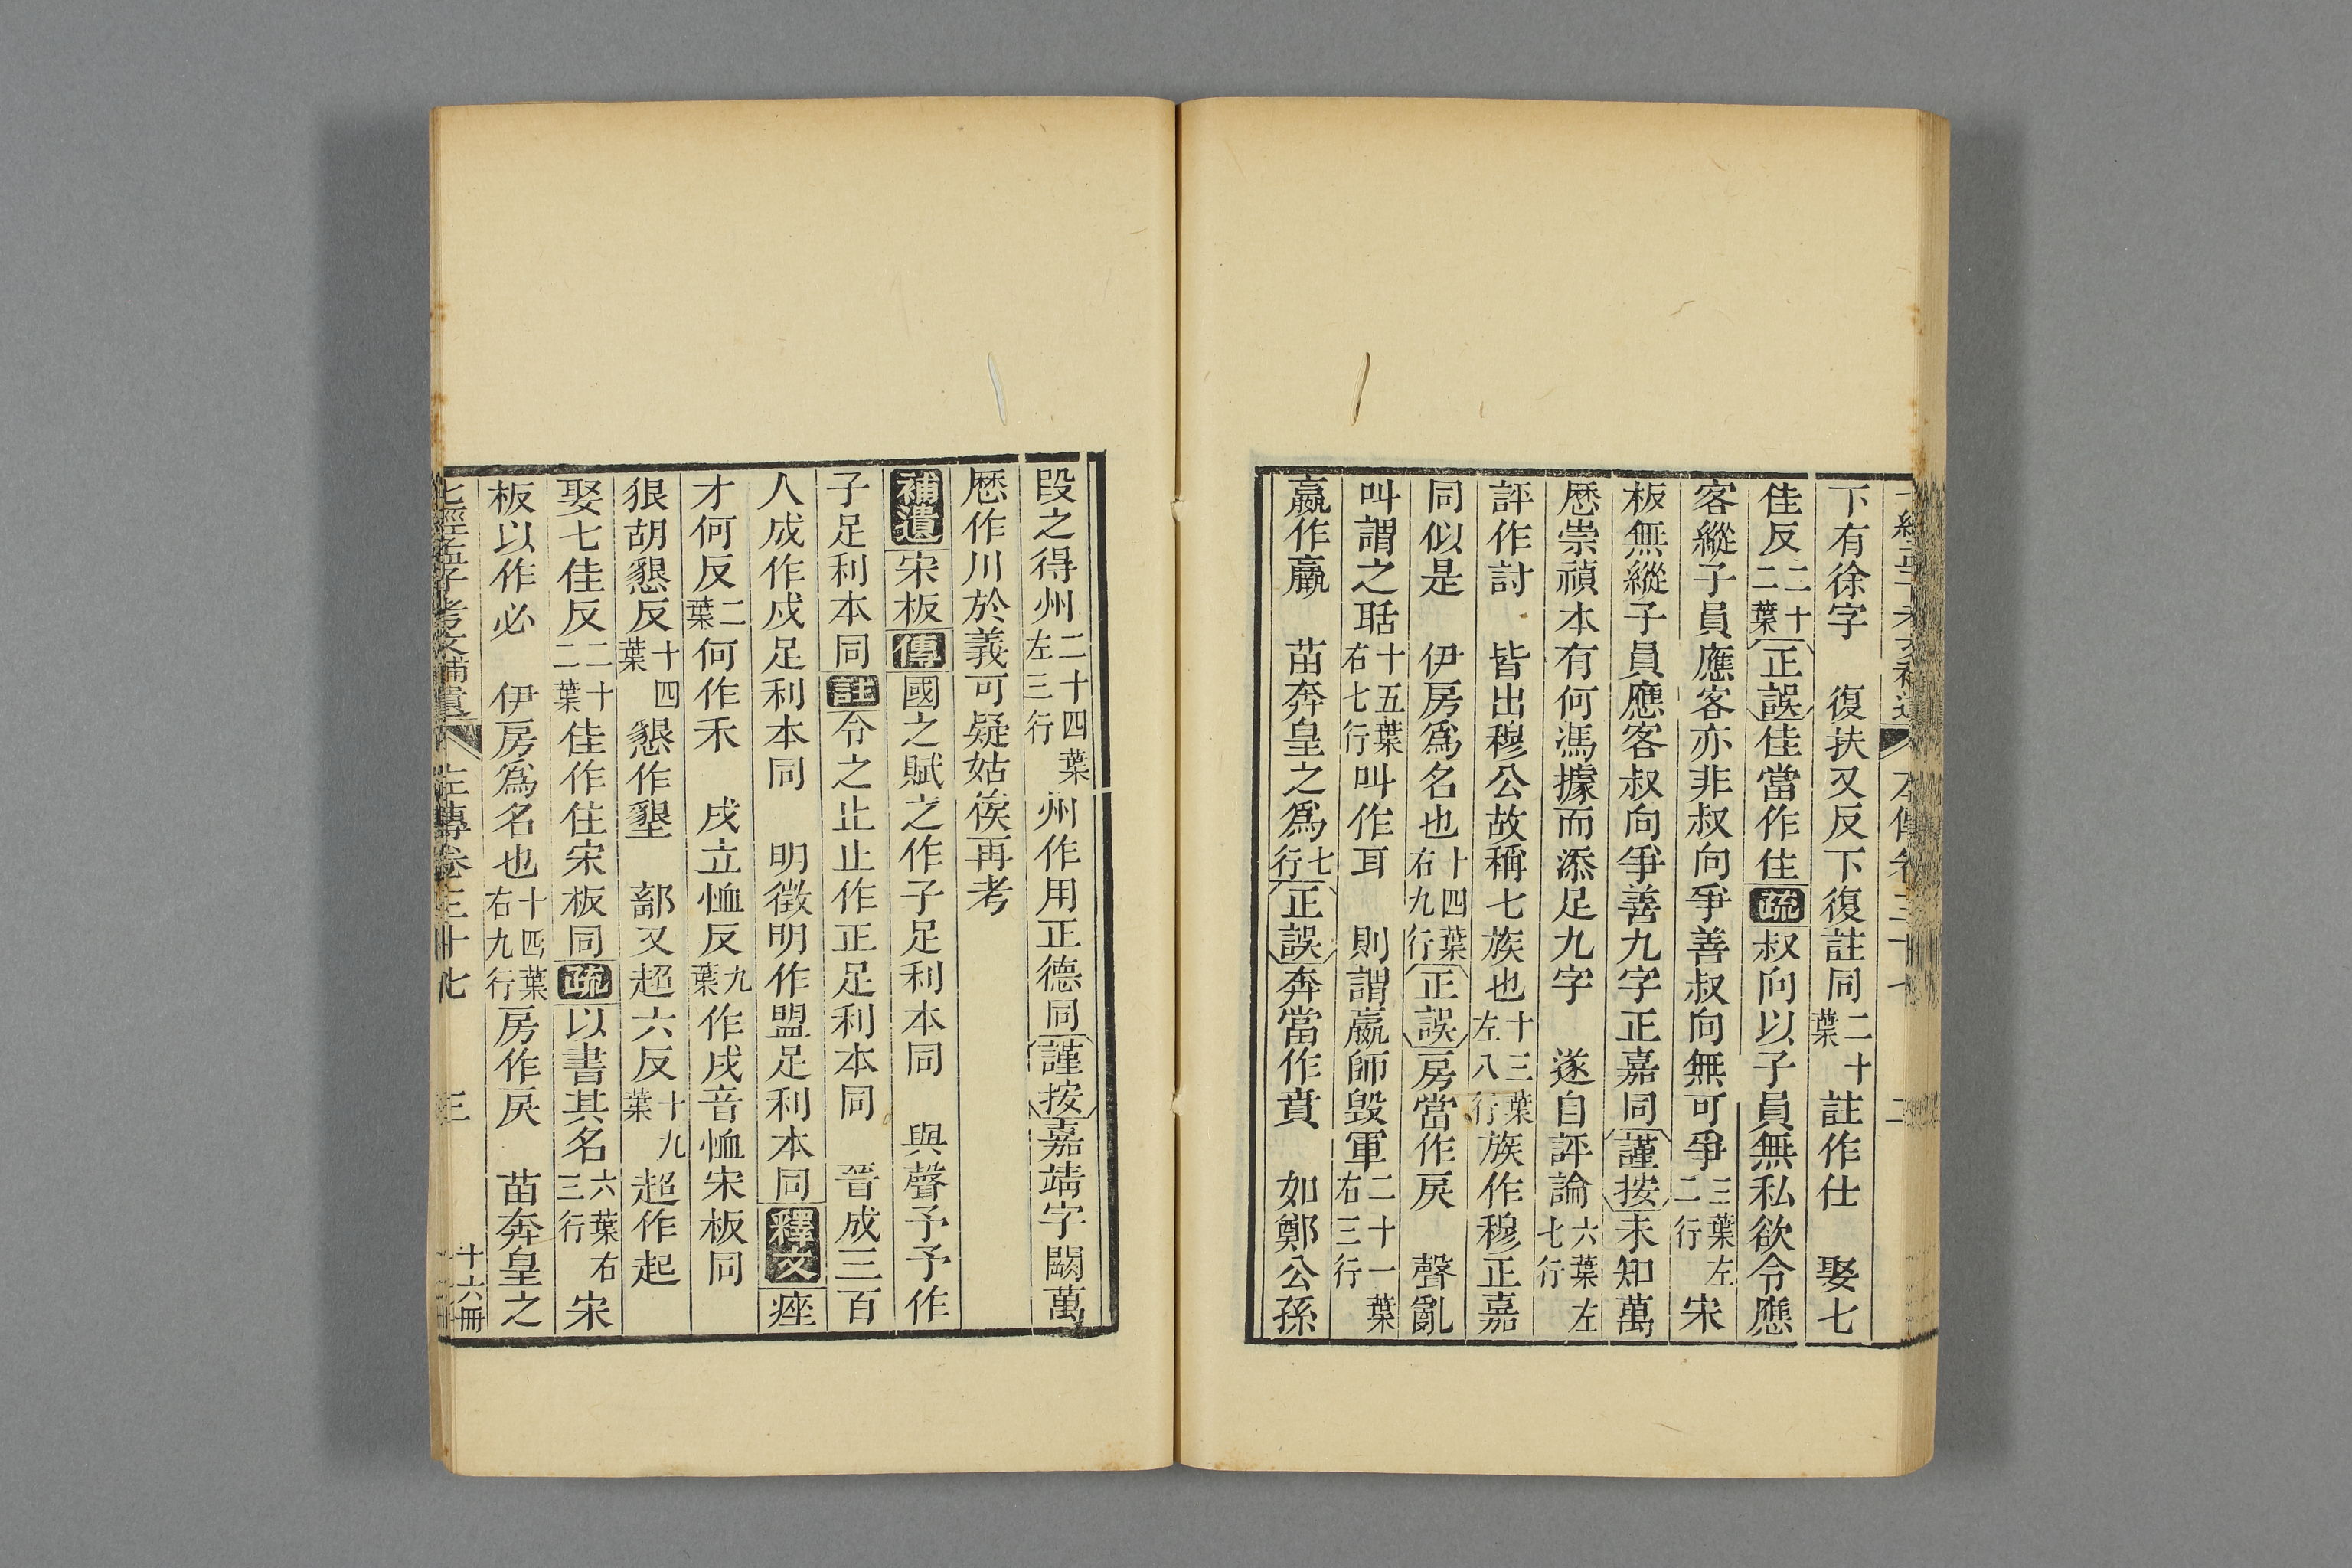 下有徐字　復扶又反下復註同二十葉註作仕　娶七
佳反二十二葉正誤佳當作住疏叔向以子員無私欲令應
客縱子員應客亦非叔向爭善叔向無可爭三葉左二行宋
板無縱子員應客叔向爭善九字正嘉同謹按未知萬
厯崇禎本有何馮據而添足九字　遂自評論六葉左七行
評作討　皆出穆公故稱七族也十三葉左八行族作穆正嘉
同似是　伊房爲名也十四葉右九行正誤房當作戾　聲亂
叫謂之聒十五葉右七行叫作耳　則謂嬴師毁軍二十一葉右三行
嬴作羸　苗奔皇之爲七行正誤奔當作賁　如鄭公孫
段之得州二十四葉左三行州作用正德同謹按嘉靖字闕萬
厯作川於義可疑姑俟再考
補遺宋板傳國之賦之作子足利本同　與聲予予作
子足利本同註令之止止作正足利本同　晉成三百
人成作戍足利本同　明徵明作盟足利本同釋文痤
才何反二葉何作禾　戌立恤反九葉作戌音恤宋板同
狠胡懇反十四葉懇作墾　鄐又超六反十九葉超作起
娶七佳反二十二葉佳作住宋板同疏以書其名六葉右三行宋
板以作必　伊房爲名也十四葉右九行房作戾　苗奔皇之
七經孟子考文補遺　左傳卷三十七　三　十六冊